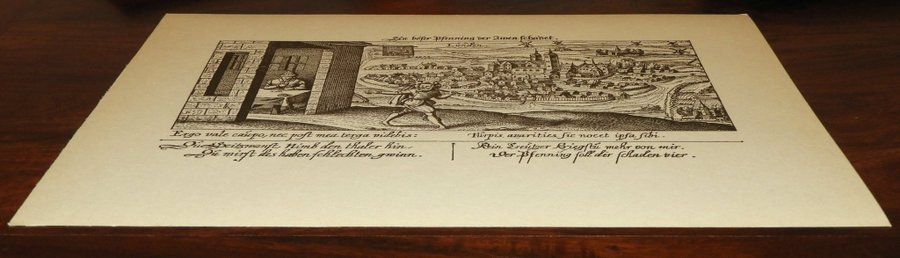 Ein böser Pfenning der Zwen schadet.
Londen.
Ergo vale caupo, nec post mea terga videbis:
Turpis avarities, sic nocet ipsa sibi.
Du Geitzwanst Nimb den thaler hin
Du wirst des haben schlechten gwinn.
Kein Creützer kriegstu mehr von mir.
Der Pfenning soll dir schaden vier.